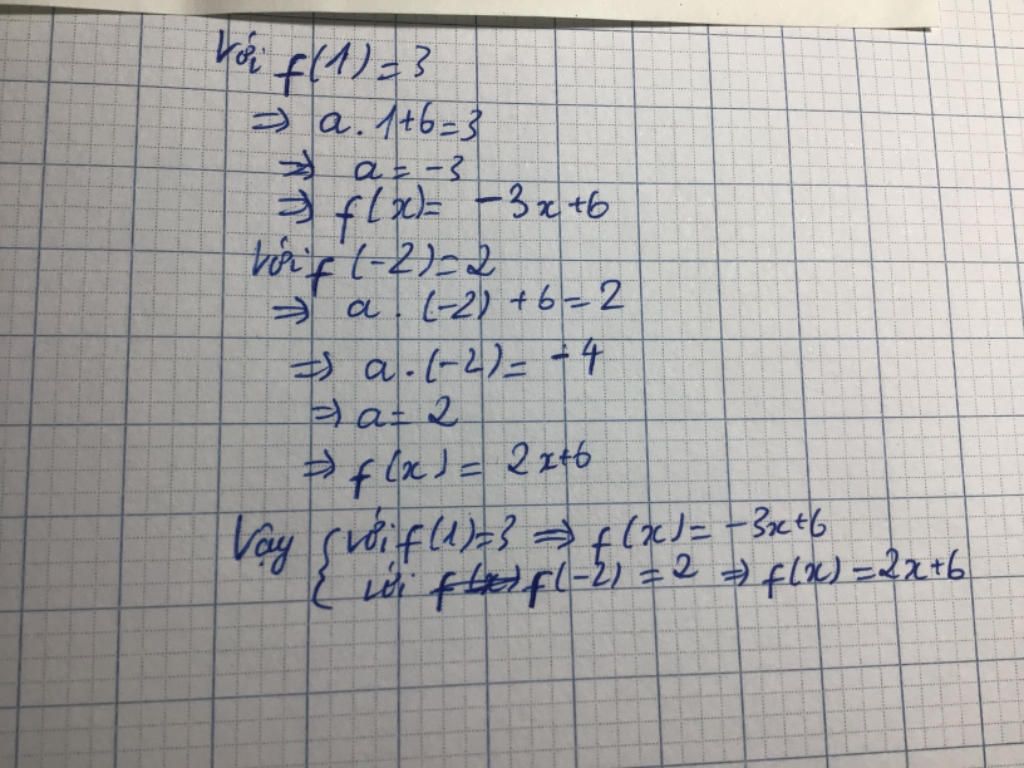 Với f(1) = 3
⇒ a . 1+6 = 3
⇒ a = -3
⇒ f(x) = -3x+6
Với f(-2) = 2
⇒ a . (-2) + 6 = 2
⇒ a . (-2) = -4
⇒ a = 2
⇒ f(x) = 2x+6
Vậy { với f(1) = 3 ⇒ f(x) = -3x+6
với f(x) f(-2) = 2 ⇒ f(x) = 2x+6